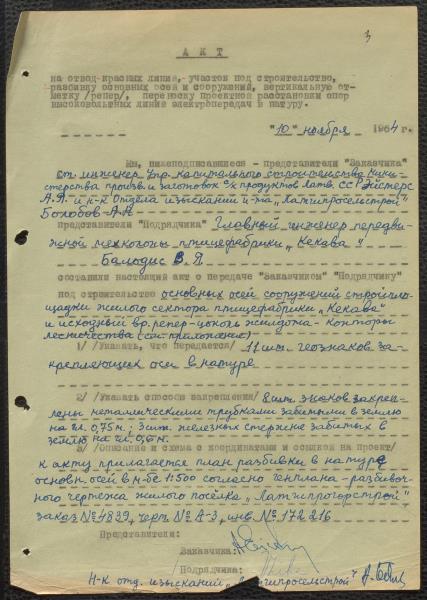 3
АКТ
на отвод красных линий, участок под строительство,
разбивку основных осей и сооружений, вертикальную от-
метку /репер/, переноску проектной расстановки опор
высоковольтных линий электропередач в натуру.
"10" ноября 1964 г.
Мы, нижеподписавшиеся - представители "Заказчика"
ст. инженер Упр. капитального строительства Мини-
стерства произв. и заготовок с/х продуктов Латв. ССР Эйстерс
А.Я. и н-к Отдела изысканий ин-та "Латгипросельстрой"
Болобов А.А.
представители "Подрядчика" Главный инженер передви-
жной мехколонны птицефабрики "Кекава"
Балодис В.Я.
составили настоящий акт о передаче "Заказчиком" "Подрядчику"
под строительство основных осей сооружений стройпло-
щадки жилого сектора птицефабрики "Кекава"
и исходный вр. репер-цоколь жилдома - конторы
лесничества (см. приложение)
1/ /Указать, что передается/ 11 шт. геознаков за-
крепляющих оси в натуре
2/ /Указать способы закрепления/ 8 шт. знаков закреп-
лены металическими трубками забитыми в землю
на гл. 0,75 м.; 3 шт. железных стержне забитых в
землю на гл. 0,6 м.
3/ /Описание и схема с координатами и ссылкой на проект/
к акту прилагается план разбивки в натуре
основн. осей в м-бе 1:500 согласно генплана - разбивоч-
ного чертежа жилого посёлка "Латгипрогорстрой"
заказ № 4839, черт. № А-3, инв. № 172216
Представители:
Заказчика:
Подрядчика:
Н-к отд. изысканий "Латгипросельстрой"